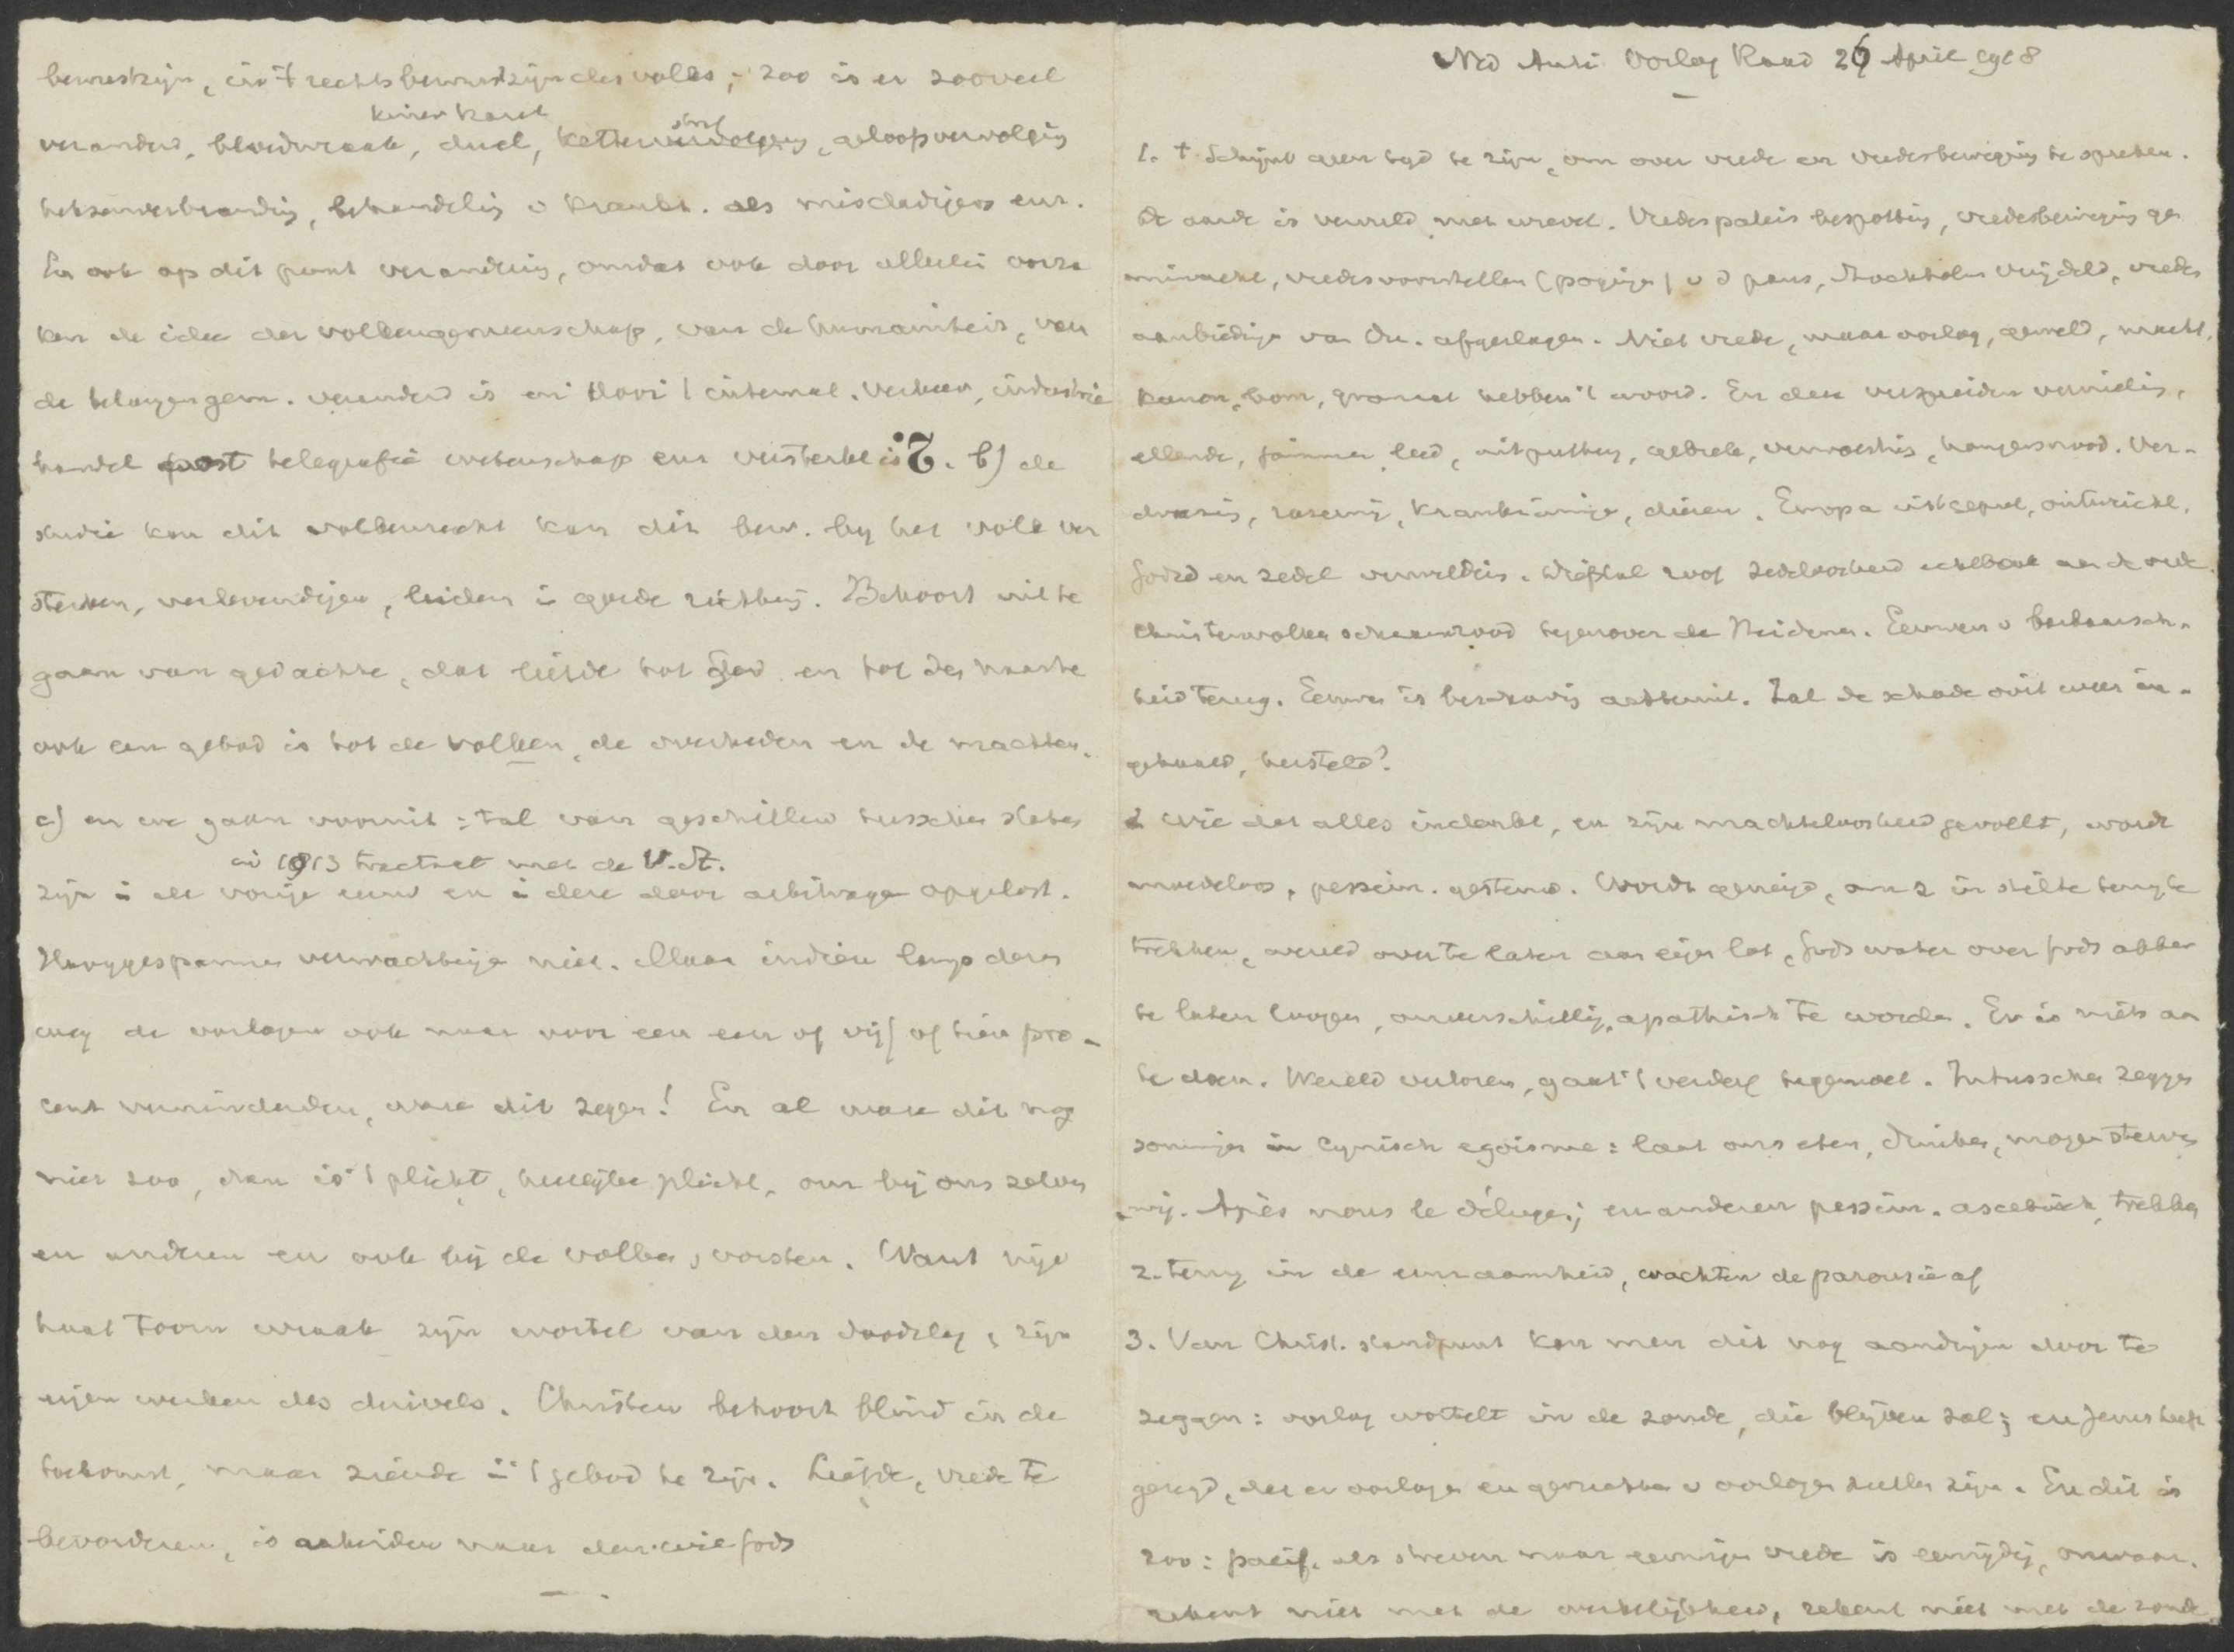 bewustzijn, in 't rechtsbewustzijn des volks; zoo is er zooveel
kinderkaart
veranderd, bloedwraak, duel, ketter straf, geloofsvervolging
heksenverbranding, behandeling v krankz. als misdadigers enz.
En ook op dit punt verandering, omdat ook door allerlei oorza
ken de idee der volkengemeenschap, van de humaniteit, van
de belangengem. veranderd is en door 't internat. verkeer, industrie
handel post telegrafie wetenschap enz versterkt is. b) de
studie kan dit volkenrecht kan dit bew. by het volk ver
sterken, verlevendigen, leiden in goede richting. Behoort uit te
gaan van gedachte, dat liefde tot God en tot den naaste
ook een gebod is tot de volken, de overheden en de machten.
c) en we gaan vooruit: tal van geschillen tusschen staten
in 1913 tractaat met de V. St.
zijn in de vorige eeuw en in deze door arbitrage opgelost.
Hooggespannen verwachtingen niet. Maar indien langs dezen
weg de oorlogen ook maar voor een een of vijf of tien pro-
cent verminderden, ware dit zegen! En al ware dit nog
niet zoo, dan is 't plicht, heerlijke plicht, om bij ons zelven
en anderen en ook bij de volken, vorsten. Want nijd
haat toorn wraak zijn wortel van den doodslag, zijn
eigen werken des duivels. Christen behoort blind in de
toekomst, maar ziende in 't gebod te zijn. Liefde, vrede te
bevorderen, is arbeiden naar den wil Gods
Ned Anti Oorlog Raad 26 April 1918
1. 't Schijnt geen tyd te zijn, om over vrede en vredesbeweging te spreken.
De aarde is vervuld met wrevel. Vredespaleis bespotting, vredesbeweging ge
minacht, vredesvoorstellen (pogingen) v d paus, Stockholm verijdeld, vredes
aanbiedingen van Du. afgeslagen. Niet vrede, maar oorlog, geweld, macht,
kanon, bom, granaat hebben 't woord. En deze verspreiden vernieling,
ellende, jammer, leed, uitputting, gebrek, verwoesting, hongersnood. Ver-
dwazing, razernij, krankzinnige, dieren. Europa uitgeput, ontwricht,
Godsd en zedel verwildering. Diefstal roof zedeloosheid echtbreuk aan de orde.
Christenvolken schaamrood tegenover de Heidenen. Eeuwen v barbaarsch-
heid terug. Eeuwen is beschaving achteruit. Zal de schade ooit weer in-
gehaald, hersteld?
2 Wie dat alles indenkt, en zijn machteloosheid gevoelt, wordt
moedeloos, pessim. gestemd. Wordt geneigd, om z in stilte terug te
trekken, wereld over te laten aan eigen lot, Gods water over Gods akker
te laten loopen, onverschillig, apathisch te worden. Er is niets aan
te doen. Wereld verloren, gaat 't verderf tegemoet. Intusschen zeggen
sommigen in cynisch egoisme: laat ons eten, drinken, morgen sterven
wij. Après nous le déluge; en anderen pessim. ascetisch, trekken
z. terug in de eenzaamheid, wachten de parousie af
3. Van Christ. standpunt kan men dit nog aandringen door te
zeggen: oorlog wortelt in de zonde, die blijven zal; en Jezus heeft
gezegd, dat er oorlogen en geruchten v oorlogen zullen zijn. En dit is
zoo: pacif. als streven naar eeuwigen vrede is eenzijdig, onwaar.
rekent niet met de werkelijkheid, rekent niet met de zonde.